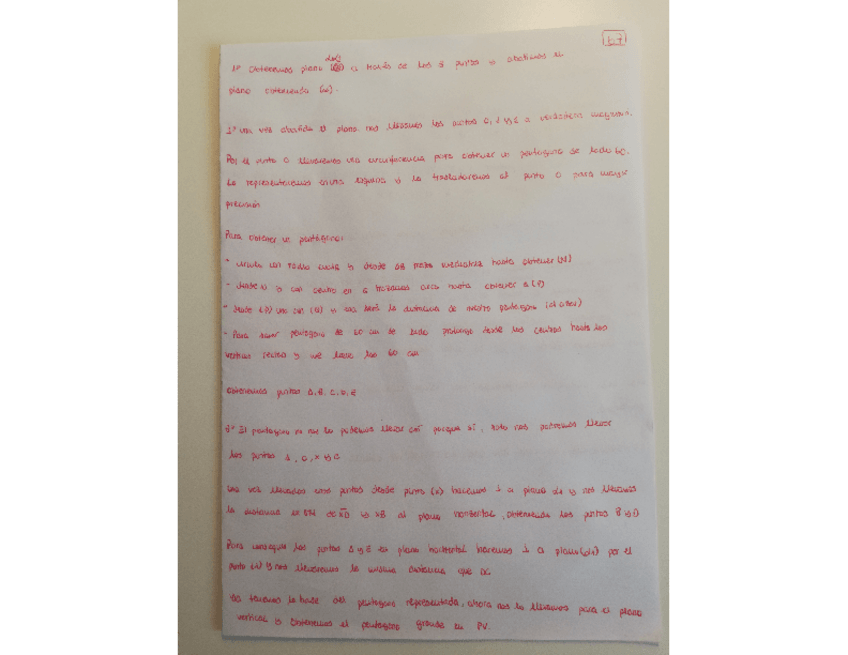 67
1º Obtenemos plano a través de los 3 puntos y abatimos el
plano obteniendo (w).
2º una vez abatido el plano, nos llevamos los puntos O, 1 y 2 a verdadera magnitud.
Por el punto O llevaremos una circunferencia para obtener un pentágono de lado 60.
Lo representaremos en una esquina y lo trasladaremos al punto O para mayor
precisión
Para obtener el pentágono:
- circulo con radio cualq y desde OB mitad mediatriz hasta obtener (M)
- desde y con centro en trazamos arco hasta obtener a (P)
- Desde (P) uno con (N) y esa será la distancia de nuestro pentágono (al azar)
- Para sacar pentágono de 60 cm de lado prolongo desde los centros hasta los
vertices y me llevo los 60 cm
Obtenemos puntos A, B, C, D, E
3º El pentágono no nos lo podemos llevar así porque sí, solo nos podremos llevar
los puntos 1, O, X y C
Una vez llevados esos puntos desde punto (X) hacemos ⊥ a plano α1 y nos llevamos
la distancia en VM de XD y XB al plano horizontal, obteniendo los puntos B y D
Para conseguir los puntos A y E en plano horizontal hacemos ⊥ a plano (α1) por el
punto y nos llevaremos la misma distancia que
Ya tenemos la base del pentágono representada, ahora nos lo llevamos para el plano
vertical y obtenemos el pentágono grande en PV.